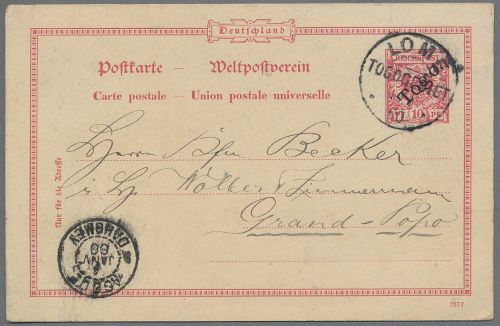 Deutschland
Postkarte — Weltpostverein
Carte postale — Union postale universelle
REICHSPOST
Togo
10 PF
LOME
TOGOGEBIET
Nur für die Adresse
Herrn Becker
Wölber
Grand-Popo
DAHOMEY
JANV
00
797f